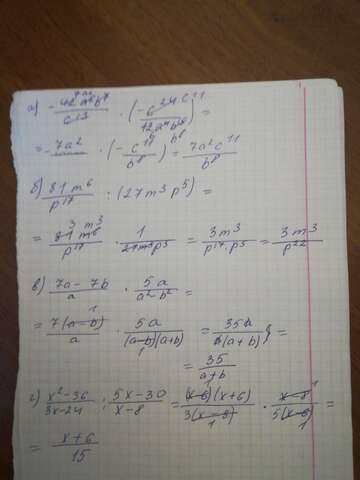 а) - 42a⁶b⁸/c¹³ · (- c²⁴·c¹¹/12a⁴b¹⁶) =
= - 7a²/ · (- c¹¹/b⁸) = 7a²c¹¹/b⁸
б) 81m⁶/p¹⁷ : (27m³p⁵) =
= 81m⁶ 3 m³/p¹⁷ · 1/27m³p⁵ = 3m³/p¹⁷·p⁵ = 3m³/p²²
в) 7a - 7b/a · 5a/a² - b² =
= 7(a-b) 1/a · 5a/(a-b)(a+b) 1 = 35a/a(a+b) =
= 35/a+b
г) x² - 36/3x - 24 : 5x - 30/x - 8 = (x-6)(x+6)/3(x-8) 1 · x-8 1/5(x-6) 1 =
= x+6/15